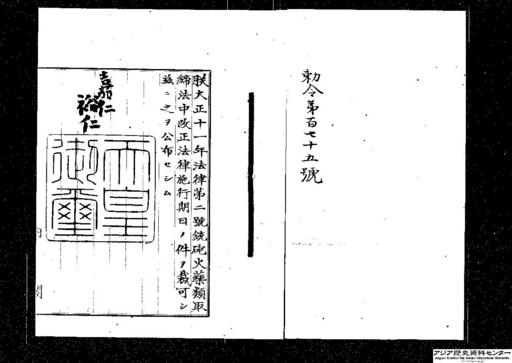 勅令第百七十五號
朕大正十一年法律第二號銃砲火藥類取
締法中改正法律施行期日ノ件ヲ裁可シ
玆ニ之ヲ公布セシム
嘉仁
裕仁
天皇
御璽
内
閣
アジア歴史資料センター
Japan Center for Asian Historical Records